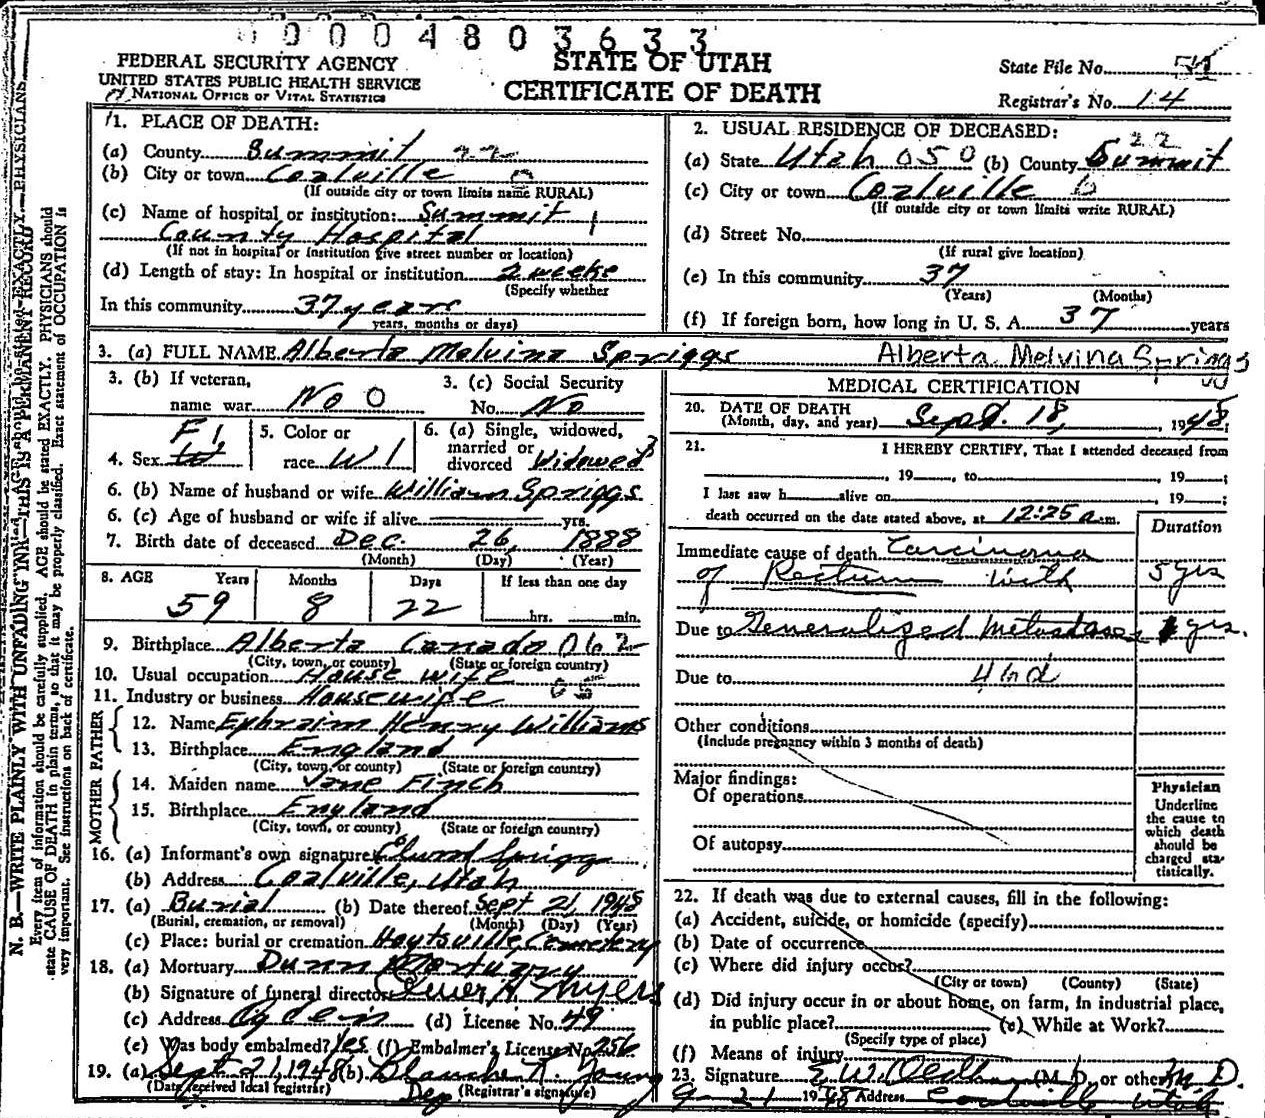 0000480 3633
FEDERAL SECURITY AGENCY
UNITED STATES PUBLIC HEALTH SERVICE
NATIONAL OFFICE OF VITAL STATISTICS
STATE OF UTAH
CERTIFICATE OF DEATH
State File No.
Registrar's No. 14
1. PLACE OF DEATH:
(a) County Summit 22
(b) City or town Coalville 0
(If outside city or town limits name RURAL)
(c) Name of hospital or institution: Summit 1
County Hospital
(If not in hospital or institution give street number or location)
(d) Length of stay: In hospital or institution 2 weeks
(Specify whether
In this community 37 years
years, months or days)
2. USUAL RESIDENCE OF DECEASED:
22
(a) State Utah 050 (b) County Summit
(c) City or town Coalville
(If outside city or town limits write RURAL)
(d) Street No.
(If rural give location)
(e) In this community 37
(Years) (Months)
(f) If foreign born, how long in U. S. A. 37 years
3. (a) FULL NAME Alberta Melvina Spriggs Alberta Melvina Spriggs
3. (b) If veteran,
name war No 0
3. (c) Social Security
No. No
4. Sex F 1
5. Color or
race W 1
6. (a) Single, widowed,
married or
divorced Widowed 3
6. (b) Name of husband or wife William Spriggs
6. (c) Age of husband or wife if alive yrs.
7. Birth date of deceased Dec. 26, 1888
(Month) (Day) (Year)
8. AGE Years Months Days If less than one day
59 8 22 hrs. min.
9. Birthplace Alberta Canada 062
(City, town, or county) (State or foreign country)
10. Usual occupation House wife
11. Industry or business Housewife
FATHER
12. Name Ephraim Henry Williams
13. Birthplace England
(City, town, or county) (State or foreign country)
MOTHER
14. Maiden name Jane Finch
15. Birthplace England
(City, town, or county) (State or foreign country)
16. (a) Informant's own signature Spriggs
(b) Address Coalville, Utah
17. (a) Burial (b) Date thereof Sept 21 1948
(Burial, cremation, or removal) (Month) (Day) (Year)
(c) Place: burial or cremation Hoytsville, Cemetery
18. (a) Mortuary Dunn Mortuary
(b) Signature of funeral director Oliver H. Myers
(c) Address Ogden (d) License No. 49
(e) Was body embalmed? Yes (f) Embalmer's License No. 256
19. (a) Sept 21, 1948 (b) Blanche R. Young
(Date received local registrar) Dep (Registrar's signature)
MEDICAL CERTIFICATION
20. DATE OF DEATH
(Month, day, and year) Sept. 18, 1948
21. I HEREBY CERTIFY, That I attended deceased from
, 19 , to , 19 ;
I last saw h alive on , 19 ;
death occurred on the date stated above, at 12:25 a.m.
Duration
Immediate cause of death Carcinoma
of Rectum with 5 yrs
Due to Generalized Metastases 1 yrs.
Due to
Other conditions
(Include pregnancy within 3 months of death)
Major findings:
Of operations
Of autopsy
Physician
Underline
the cause to
which death
should be
charged sta-
tistically.
22. If death was due to external causes, fill in the following:
(a) Accident, suicide, or homicide (specify)
(b) Date of occurrence
(c) Where did injury occur?
(City or town) (County) (State)
(d) Did injury occur in or about home, on farm, in industrial place,
in public place? (e) While at Work?
(Specify type of place)
(f) Means of injury
23. Signature (M. D. or other) M.D.
9-21 1948 Address Coalville Utah
N. B.—WRITE PLAINLY WITH UNFADING INK—THIS IS A PERMANENT RECORD
Every item of information should be carefully supplied. AGE should be stated EXACTLY. PHYSICIANS should
state CAUSE OF DEATH in plain terms, so that it may be properly classified. Exact statement of OCCUPATION is
very important. See instructions on back of certificate.